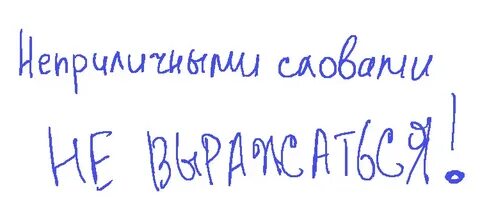 Неприличными словами
НЕ ВЫРАЖАТЬСЯ!